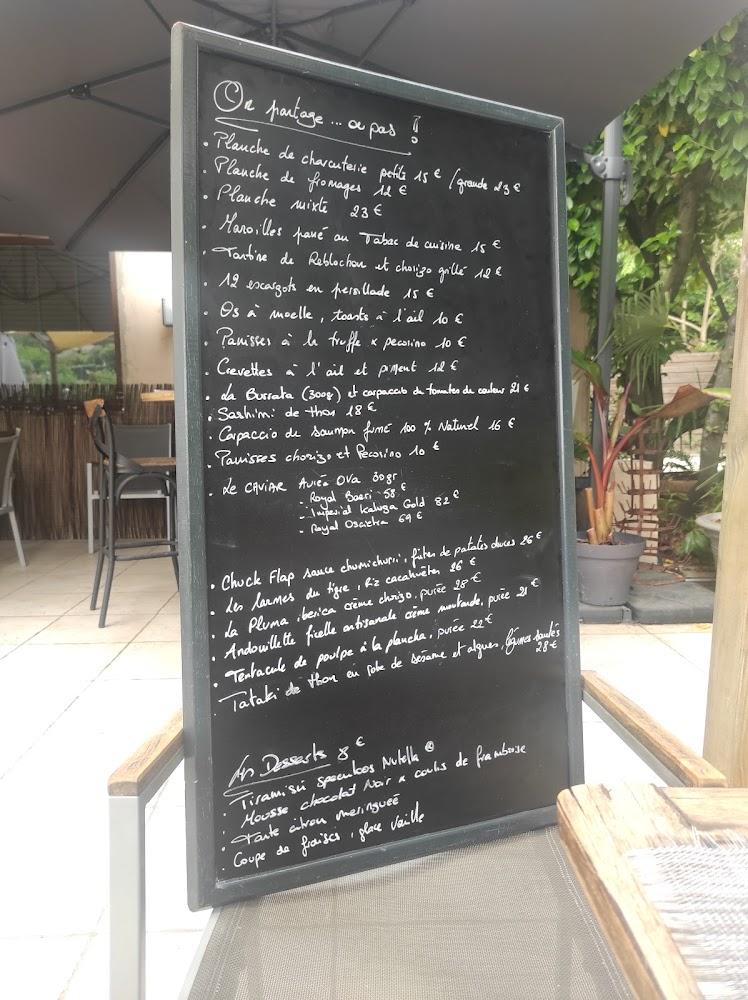 On partage ... ou pas !!
• Planche de charcuterie petite 15 € / grande 23 €
• Planche de fromages 12 €
• Planche mixte 23 €
• Maroilles pané au Tabac de cuisine 15 €
• Tartine de Reblochon et chorizo grillé 12 €
• 12 escargots en persillade 15 €
• Os à moelle, toasts à l'ail 10 €
• Panisses à la truffe x pecorino 10 €
• Crevettes à l'ail et piment 12 €
• La Burrata (300g) et carpaccio de tomates de couleur 21 €
• Sashimi de thon 18 €
• Carpaccio de saumon fumé 100 % Naturel 16 €
• Panisses chorizo et Pecorino 10 €
• Le CAVIAR Aviéa OVA 30gr
- Royal Baeri 58 €
- Impérial Kaluga Gold 82 €
- Royal Oscietra 69 €
• Chuck Flap sauce chumichurri, frites de patates douces 26 €
• Les larmes du tigre, Riz cacahuètes 26 €
• La Pluma iberica crème chorizo, purée 28 €
• Andouillette ficelle artisanale crème moutarde, purée 21 €
• Tentacule de poulpe à la plancha, purée 22 €
• Tataki de thon en robe de sésame et algues, légumes sautés
28 €
Les Desserts 8 €
• Tiramisù speculoos Nutella ®
• Mousse chocolat Noir x coulis de framboise
• Tarte citron meringuée
• Coupe de fraises, glace vanille